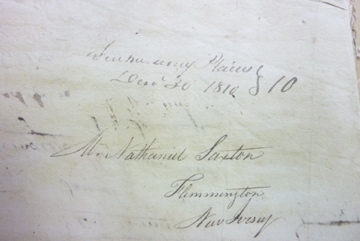 Plains
Dec 30 1810 10
Mr Nathaniel Saxton
Flemmington
New Jersey